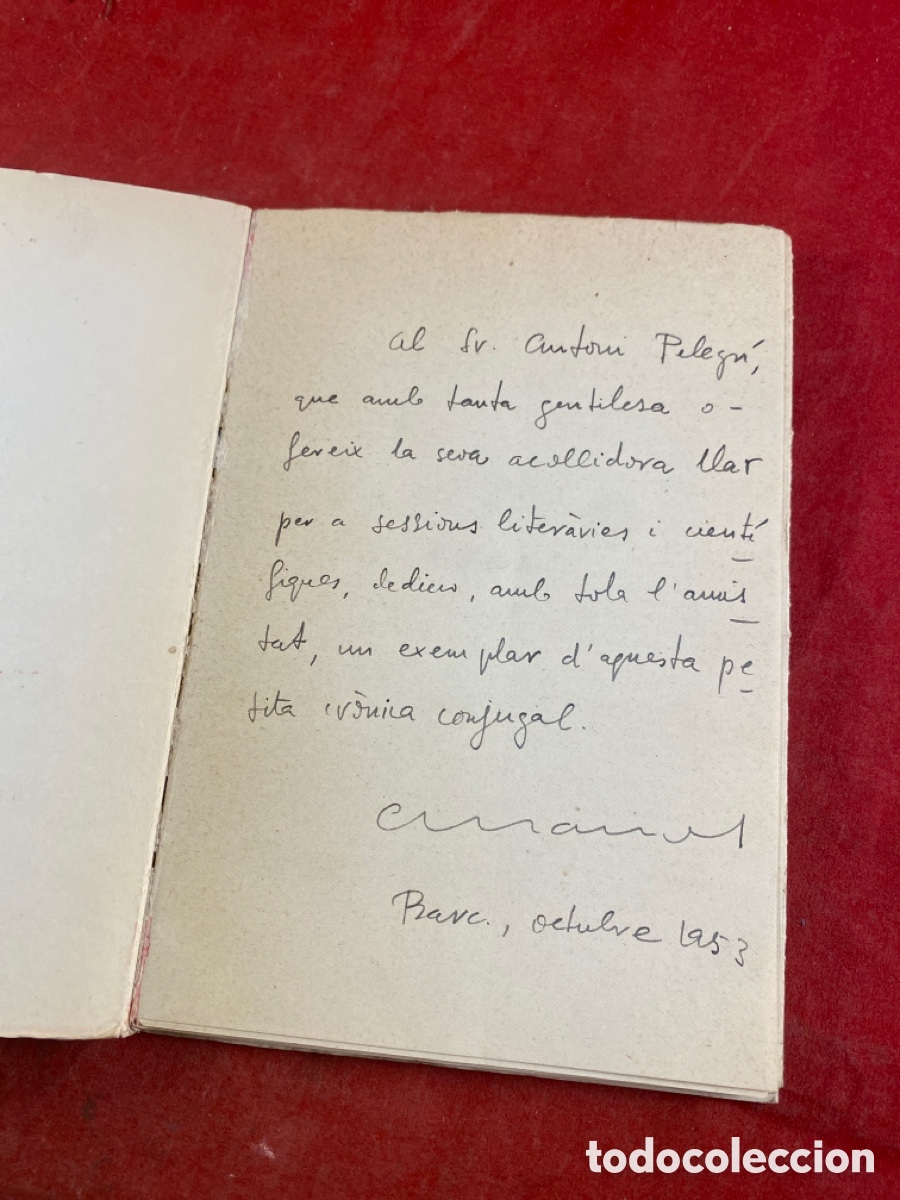 Al Sr. Antoni Pelegrí,
que amb tanta gentilesa o-
fereix la seva acollidora llar
per a sessions literàries i cientí
fiques, dedico, amb tota l'amis
tat, un exemplar d'aquesta pe
tita crònica conjugal.
Barc., octubre 1953
todocoleccion